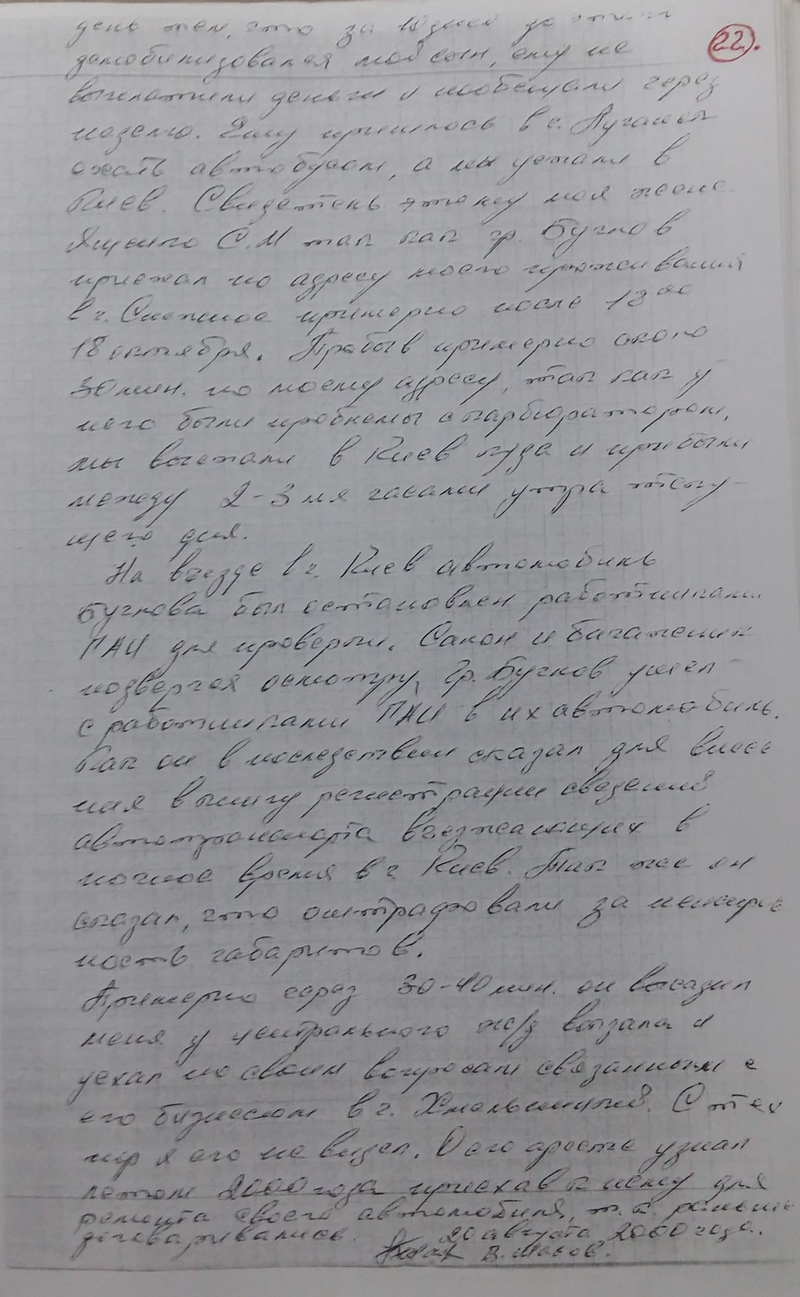 22.
день тем, что за 10 дней до этого
демобилизовался мой сын, ему не
выплатили деньги и пообещали через
неделю. Ему пришлось в г. Луганск
ехать автобусом, а мы уехали в
Киев. Свидетель этому моя жена
Ященко С.М так как гр. Бучнов
приехал по адресу моего проживания
в г. Снежное примерно после 13 00
18 октября. Пробыв примерно около
30 мин. по моему адресу, так как у
него были проблемы с карбюратором,
мы выехали в Киев куда и прибыли
между 2-3 мя часами утра
щего дня.
На въезде в г. Киев автомобиль
Бучнова был остановлен работниками
ГАИ для проверки. Салон и багажник
подвергся осмотру, гр. Бучнов ушел
с работниками ГАИ в их автомобиль.
Как он в последствии сказал для внесе
ния в книгу регистрации сведений
автотранспорта въезжающих в
ночное время в г. Киев. Так же он
сказал, что оштрафовали за неисправ
ность габаритов.
Примерно через 30-40 мин. он высадил
меня у центрального ж/д вокзала и
уехал по своим вопросам связанным с
его бизнесом в г. Хмельницкий. С тех
пор я его не видел. О его аресте узнал
летом 2000 года приехав к нему для
ремонта своего автомобиля, т.к. раньше
договаривались. 20 августа 2000 года.
В.